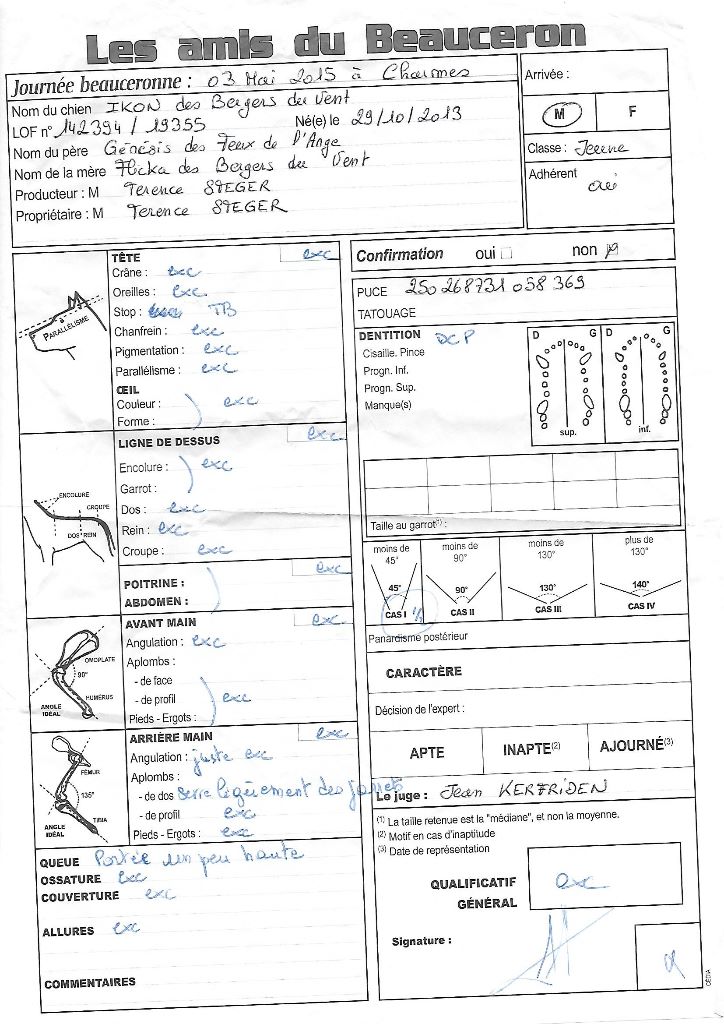 Les amis du Beauceron
Journée beauceronne : 03 Mai 2015 à Charmes
Nom du chien IKON des Bergers du Vent
LOF n° 142394 / 19355 Né(e) le 29/10/2013
Nom du père Génésis des Feux de l'Ange
Nom de la mère Flicka des Bergers du Vent
Producteur : M Terence STEGER
Propriétaire : M Terence STEGER
Arrivée :
M F
Classe : Jeune
Adhérent
oui
PARALLÉLISME
TÊTE exc
Crâne : exc
Oreilles : exc
Stop : TB
Chanfrein : exc
Pigmentation : exc
Parallélisme : exc
ŒIL
Couleur : exc
Forme :
ENCOLURE
GROUPE
DOS REIN
LIGNE DE DESSUS exc
Encolure : exc
Garrot :
Dos : exc
Rein : exc
Croupe : exc
POITRINE : exc
ABDOMEN :
OMOPLATE
90°
HUMÉRUS
ANGLE
IDÉAL
AVANT MAIN exc
Angulation : exc
Aplombs :
- de face
- de profil exc
Pieds - Ergots :
FÉMUR
135°
TIBIA
ANGLE
IDÉAL
ARRIÈRE MAIN exc
Angulation : juste exc
Aplombs :
- de dos serre légèrement des jarrets
- de profil exc
Pieds - Ergots : exc
QUEUE Portée un peu haute
OSSATURE exc
COUVERTURE exc
ALLURES exc
COMMENTAIRES
Confirmation oui non
PUCE 250 268731 058 369
TATOUAGE
DENTITION DCP
Cisaille. Pince
Progn. Inf.
Progn. Sup.
Manque(s)
D G D G
sup. inf.
Taille au garrot(1) :
moins de 45° moins de 90° moins de 130° plus de 130°
45° 90° 130° 140°
CAS I CAS II CAS III CAS IV
Panardisme postérieur
CARACTÈRE
Décision de l'expert :
APTE INAPTE(2) AJOURNÉ(3)
Le juge : Jean KERFRIDEN
(1) La taille retenue est la "médiane", et non la moyenne.
(2) Motif en cas d'inaptitude
(3) Date de représentation
QUALIFICATIF
GÉNÉRAL exc
Signature :
CEDIA